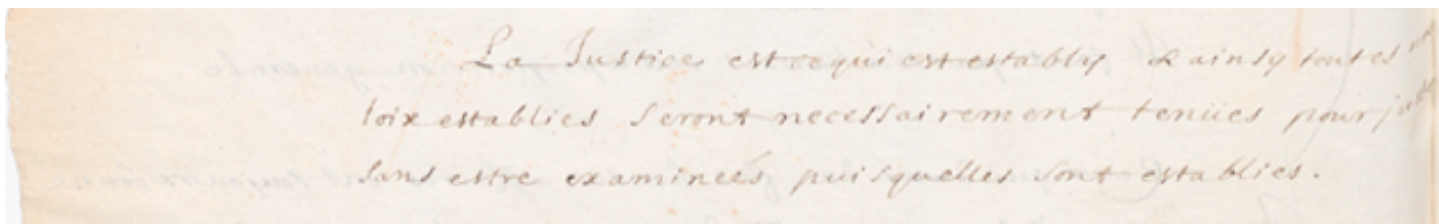 La Justice est ce qui est estably & ainsy toutes nos
loix establies seront necessairement tenües pour justes
sans estre examineés puisquelles sont establies.